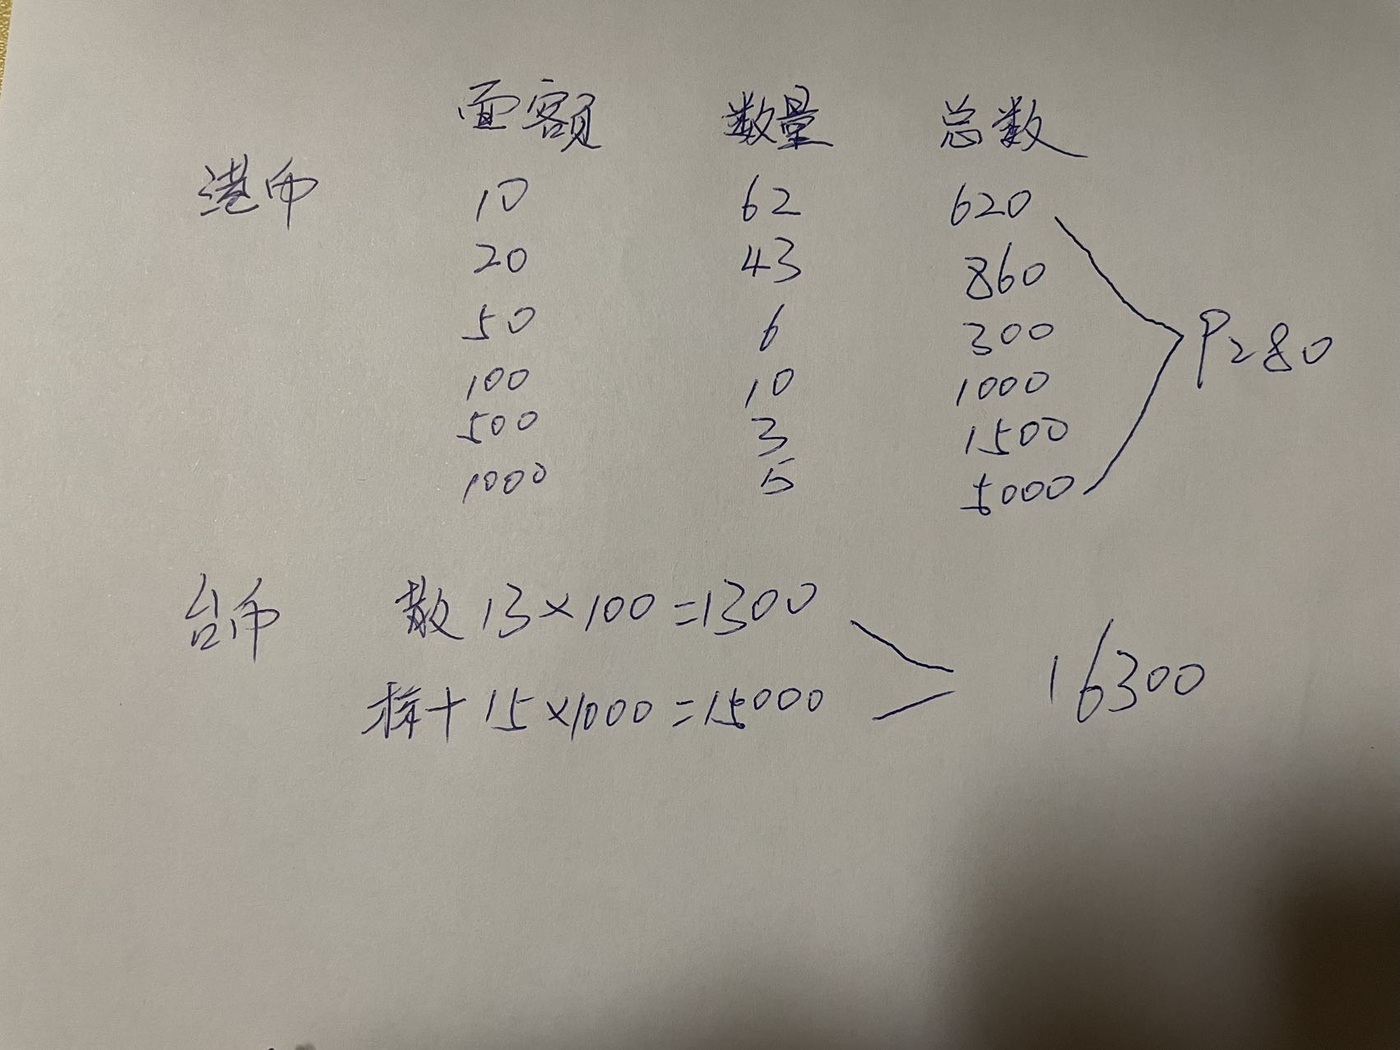 面额 数量 总数
港币 10 62 620
20 43 860
50 6 300
100 10 1000
500 3 1500
1000 5 5000
9280
台币 散 13×100=1300
15×1000=15000
16300